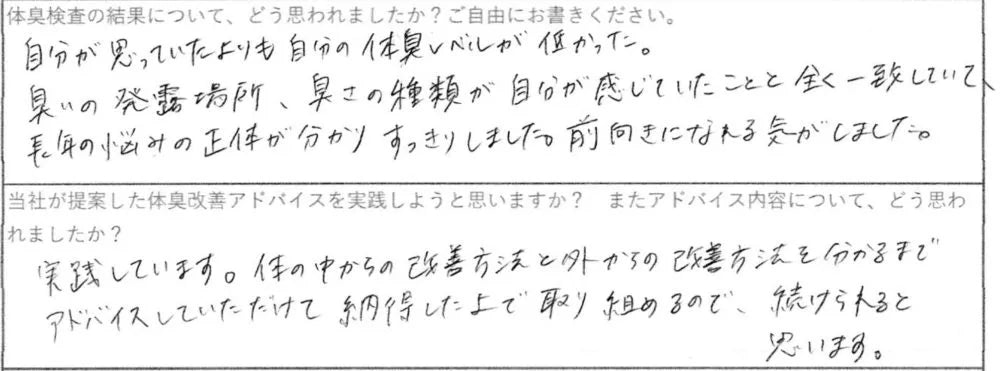 体臭検査の結果について、どう思われましたか？ご自由にお書きください。
自分が思っていたよりも自分の体臭レベルが低かった。
臭いの発露場所、臭さの種類が自分が感じていたことと全く一致していて、
長年の悩みの正体が分かりすっきりしました。前向きになれる気がしました。
当社が提案した体臭改善アドバイスを実践しようと思いますか？　またアドバイス内容について、どう思わ
れましたか？
実践しています。体の中からの改善方法と外からの改善方法を分かるまで
アドバイスしていただけて納得した上で取り組めるので、続けられると
思います。